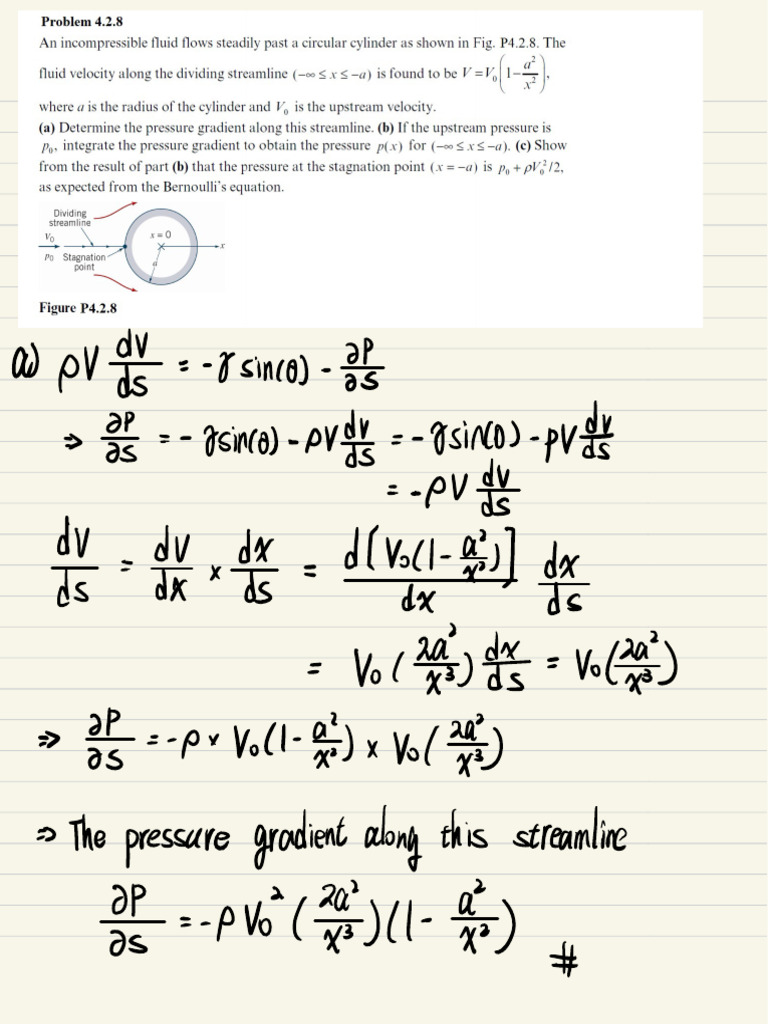 Problem 4.2.8
An incompressible fluid flows steadily past a circular cylinder as shown in Fig. P4.2.8. The
fluid velocity along the dividing streamline (−∞ ≤ x ≤ −a) is found to be V = V₀(1 − a²/x²),
where a is the radius of the cylinder and V₀ is the upstream velocity.
(a) Determine the pressure gradient along this streamline. (b) If the upstream pressure is
p₀, integrate the pressure gradient to obtain the pressure p(x) for (−∞ ≤ x ≤ −a). (c) Show
from the result of part (b) that the pressure at the stagnation point (x = −a) is p₀ + ρV₀²/2,
as expected from the Bernoulli's equation.
Dividing
streamline
V₀
x = 0
x
p₀ Stagnation
point
a
Figure P4.2.8
a) ρV dV/ds = -γ sin(θ) - ∂P/∂s
⇒ ∂P/∂s = - γsin(θ) - ρV dV/ds = - γsin(θ) - ρV dV/ds
= -ρV dV/ds
dV/ds = dV/dx × dx/ds = d[V₀(1 - a²/x²)]/dx dx/ds
= V₀(2a²/x³) dx/ds = V₀(2a²/x³)
⇒ ∂P/∂s = -ρ × V₀(1 - a²/x²) × V₀(2a²/x³)
⇒ The pressure gradient along this streamline
∂P/∂s = -ρV₀²(2a²/x³)(1 - a²/x²) #